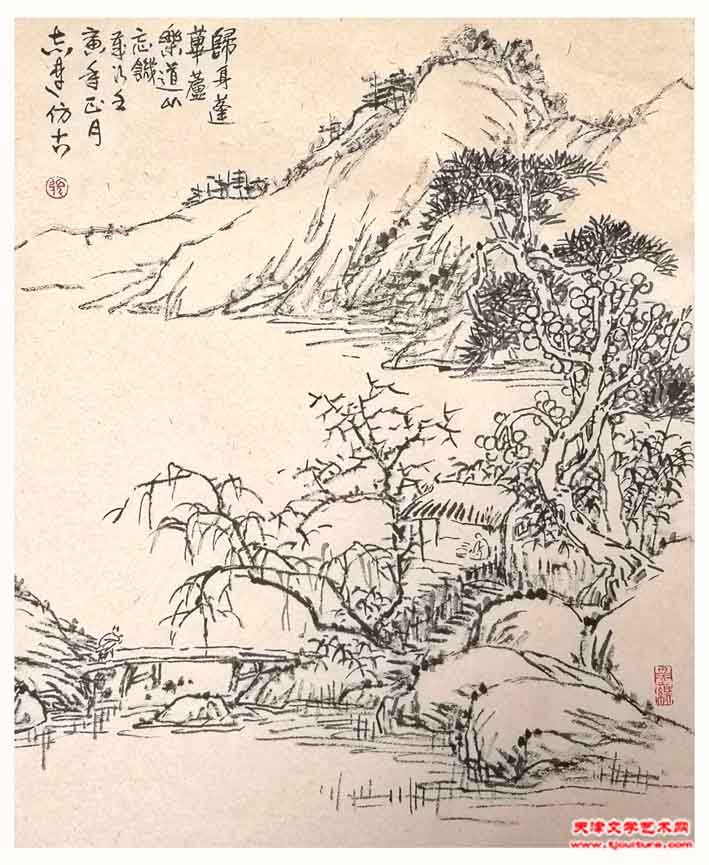 歸身蓬
蓽蘆
樂道以
忘饑
歲次壬
寅年正月
仿古
天津文学艺术网
www.tjculture.com